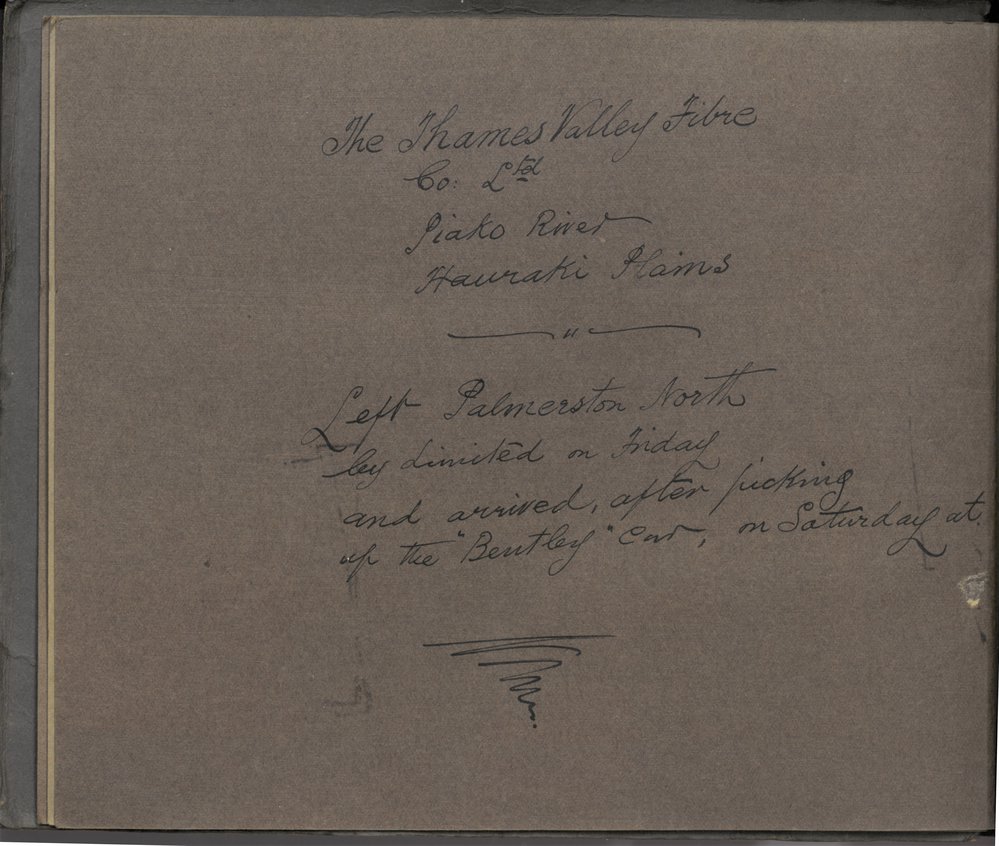 The Thames Valley Fibre
Co: Ltd
Piako River
Hauraki Plains
"
Left Palmerston North
by Limited on Friday
and arrived, after picking
up the "Bentley" Car, on Saturday at.